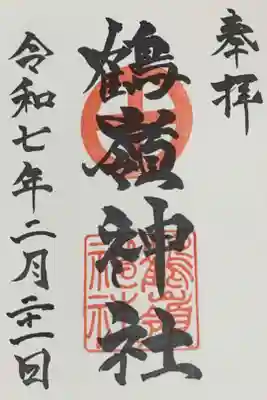 奉拝
鶴嶺神社
鶴嶺神社
令和七年二月二十一日